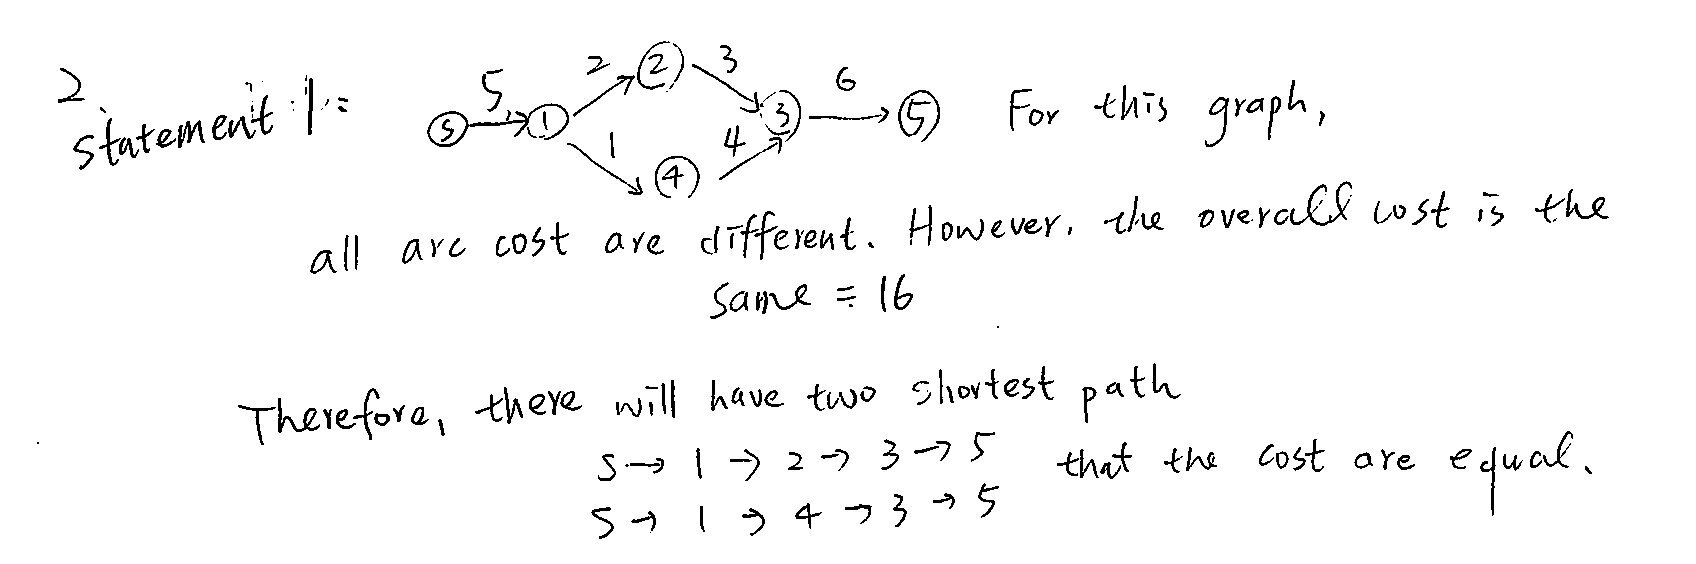 2.
statement 1:
5 2 3 6
S 1 2 3 5
1 4
4
For this graph,
all arc cost are different. However, the overall cost is the
same = 16
Therefore, there will have two shortest path
S → 1 → 2 → 3 → 5 that the cost are equal.
S → 1 → 4 → 3 → 5